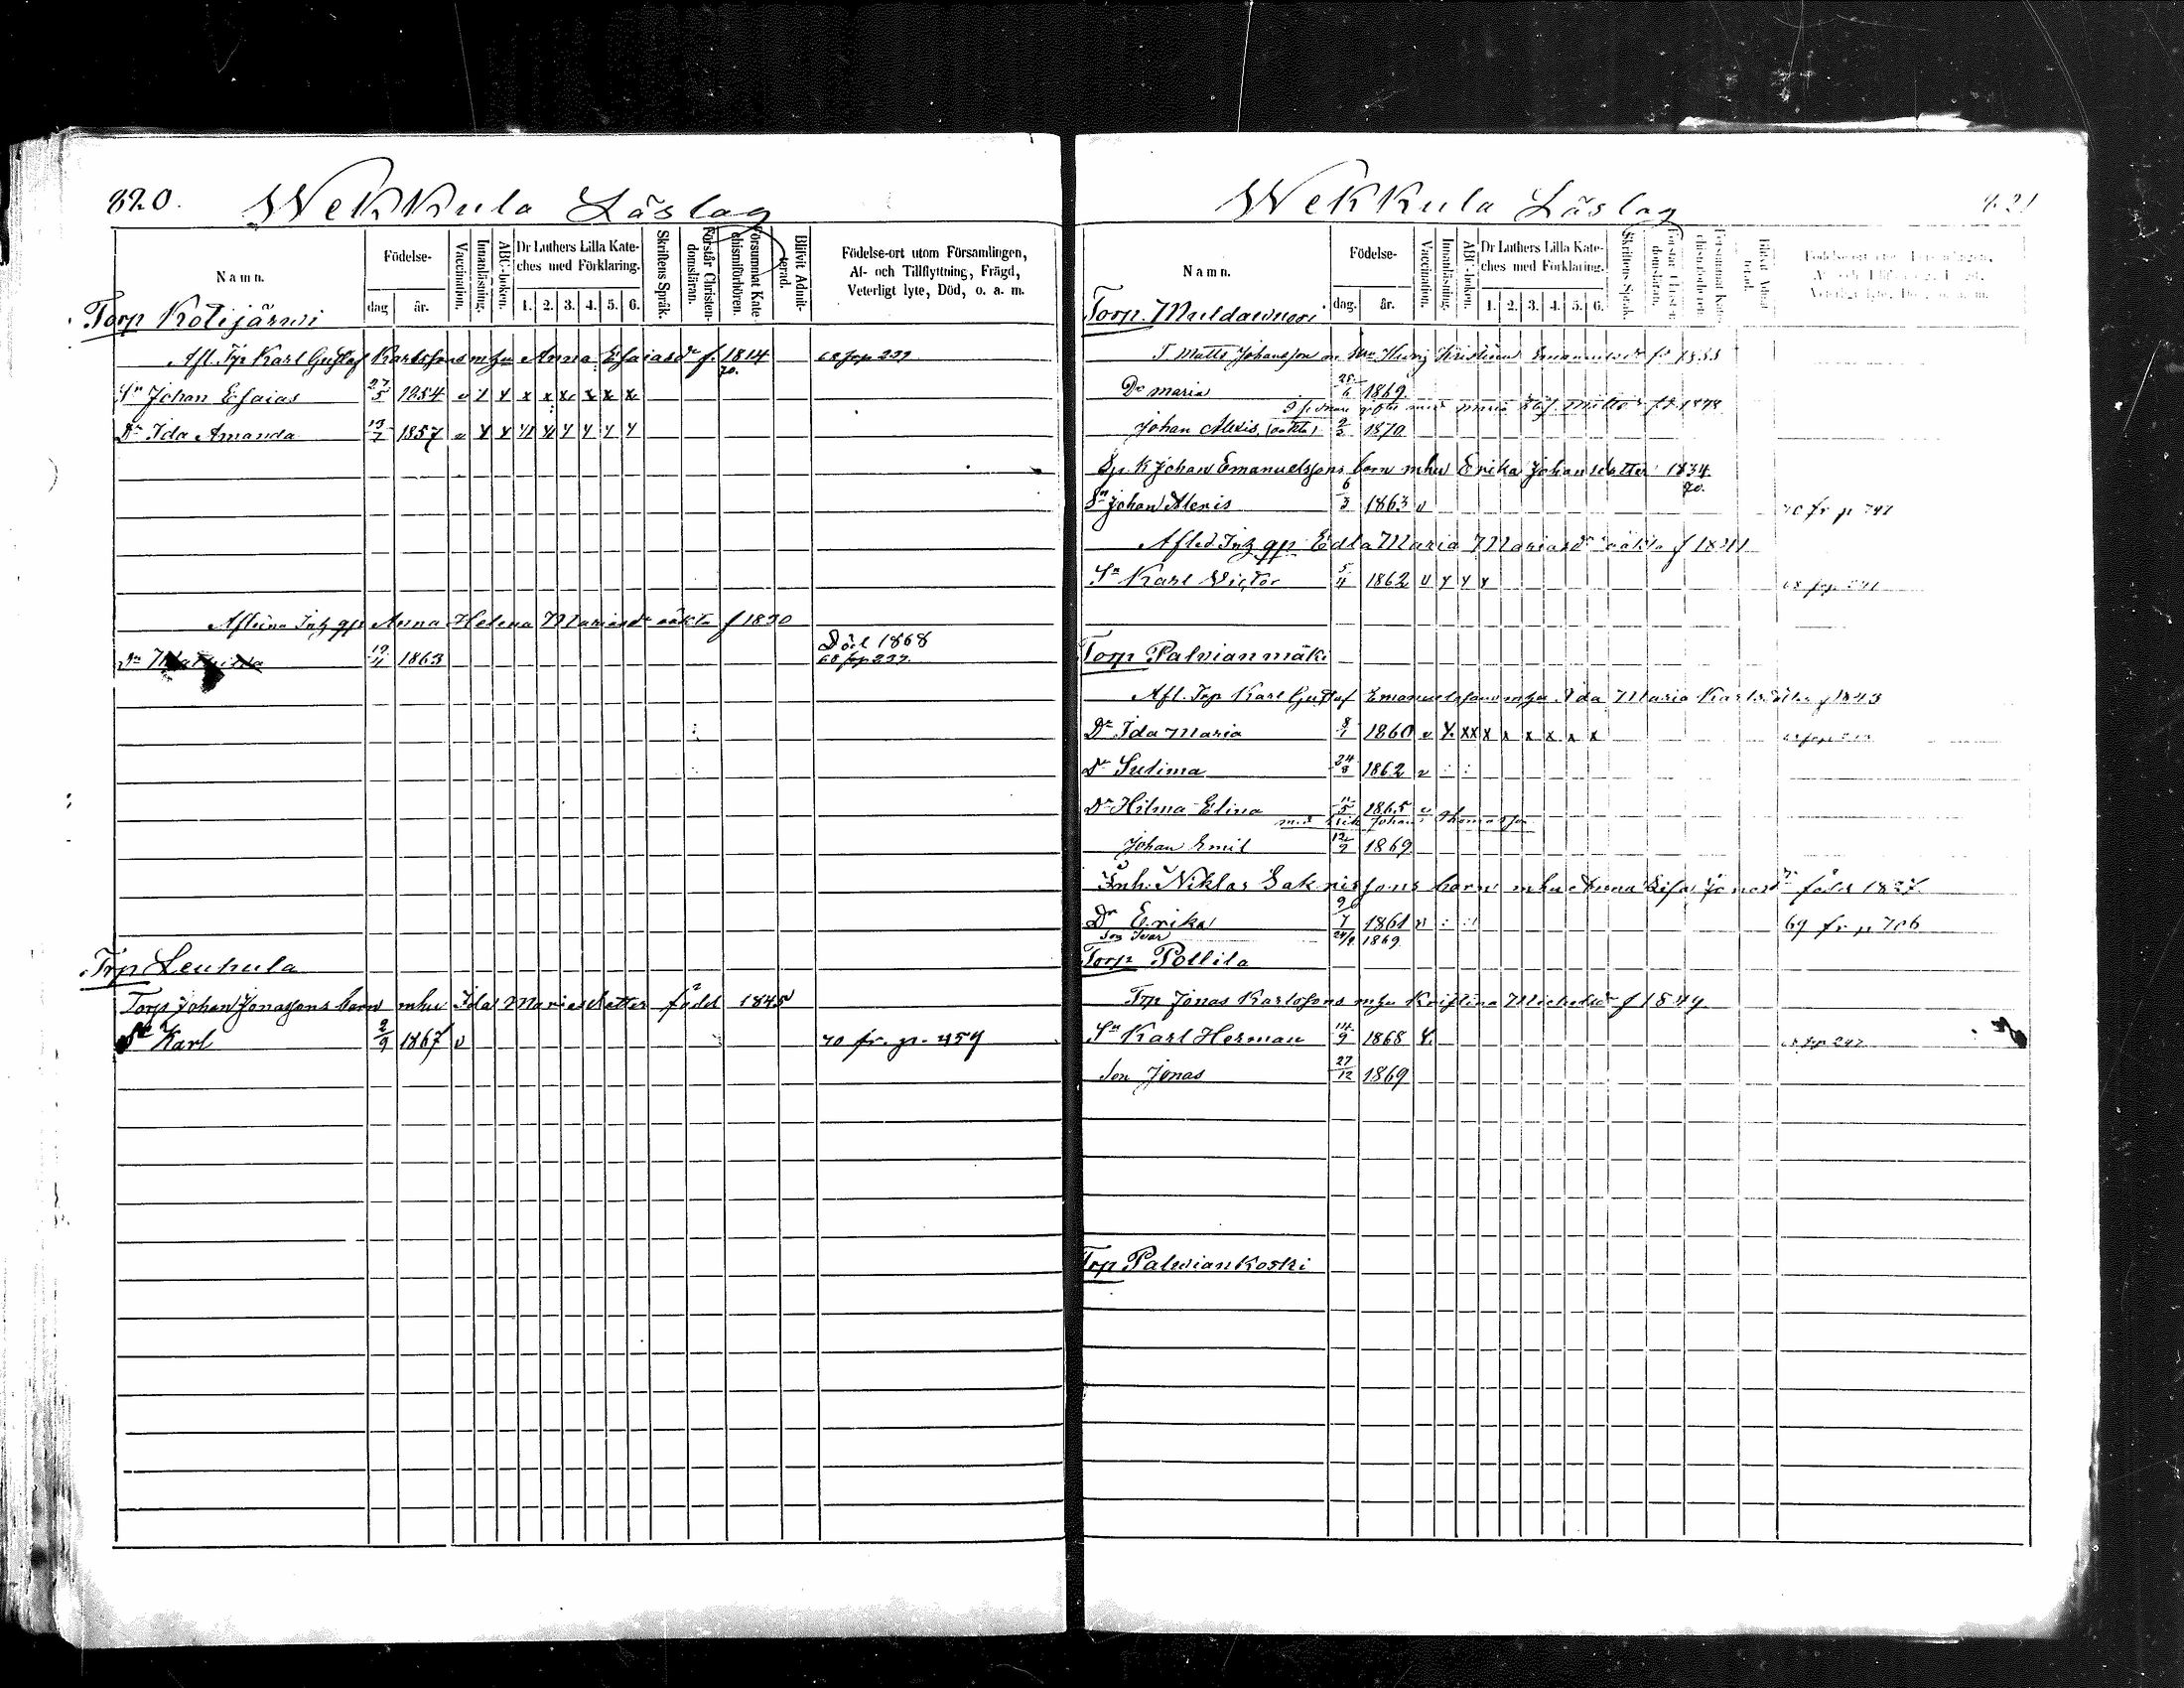 820.
Wekkula Läslag
Namn.
Födelse-
dag
år.
Vaccination.
Innanläsning.
ABC-boken.
Dr Luthers Lilla Kate-
ches med Förklaring.
1. 2. 3. 4. 5. 6.
Skriftens Språk.
Förstår Christen-
domsläran.
Försummat Kate-
chismiförhören.
Blifvit Admit-
terad.
Födelse-ort utom Församlingen,
Af- och Tillflyttning, Frägd,
Veterligt lyte, Död, o. a. m.
Torp Kotijärwi
Afl. Trp Karl Gustaf Karlssons mhu Anna Esaiasdr f. 1814 68 frp 239
70.
Sn Johan Esaias 27/5 1854 v y y x x x x x x
Dr Ida Amanda 13/7 1857 v y y y y y y y y
Afl Inh gp Anna Helena Mariasdr oäkta f 1830
Död 1868
Dr 19/4 1863 68 frp 239.
Trp Leuhula
Torp Johan Jonassons barn mhu Ida Mariesdotter född 1845
Sn Karl 2/9 1867 v 70 fr. p. 459
Wekkula Läslag
821
Namn.
Födelse-
dag.
år.
Vaccination.
Innanläsning.
ABC-boken.
Dr Luthers Lilla Kate-
ches med Förklaring.
1. 2. 3. 4. 5. 6.
Skriftens Språk.
Förstår Christen-
domsläran.
Försummat Kate-
chismiförhören.
Blifvit Admit-
terad.
Födelse-ort utom Församlingen,
Af- och Tillflyttning, Frägd,
Veterligt lyte, Död, o. a. m.
Torp.
T Matts Johansson m hu Kristina
Dr Maria 1869
gifte med Maria
Johan Alexis (oäkta) 2/3 1870
Johan Emanuelssons barn mhu Erika Johansdotter 1834
70.
Sn Johan Alexis 6/3 1863 v 70 fr p
Inh gp Edla Maria Mariasdr oäkta f 1841
Sn Karl Victor 5/4 1862 v y y y
Torp Palwianmäki
Afl. Trp Karl Gustaf Emanuelssons mhu Ida Maria Karlsdotter f 1843
Dr Ida Maria 8/7 1860 v y xx x x x x x x
Dr 24/8 1862 v
Dr Hilma Elina 1865 v
med Erik Johan Thomasson
Johan Emil 12/9 1869
Inh. Niklas barn mhu Anna född
Dr Erika 9/7 1861 v 69 fr p 706
Son Ivar 24/9 1869
Torp Pollila
Trp Jonas Karlssons mhu Kristina Michelsdr f 1849
Sn Karl Herman 14/9 1868 y. frp 247
Son Jonas 27/12 1869
Trp Palwiankoski